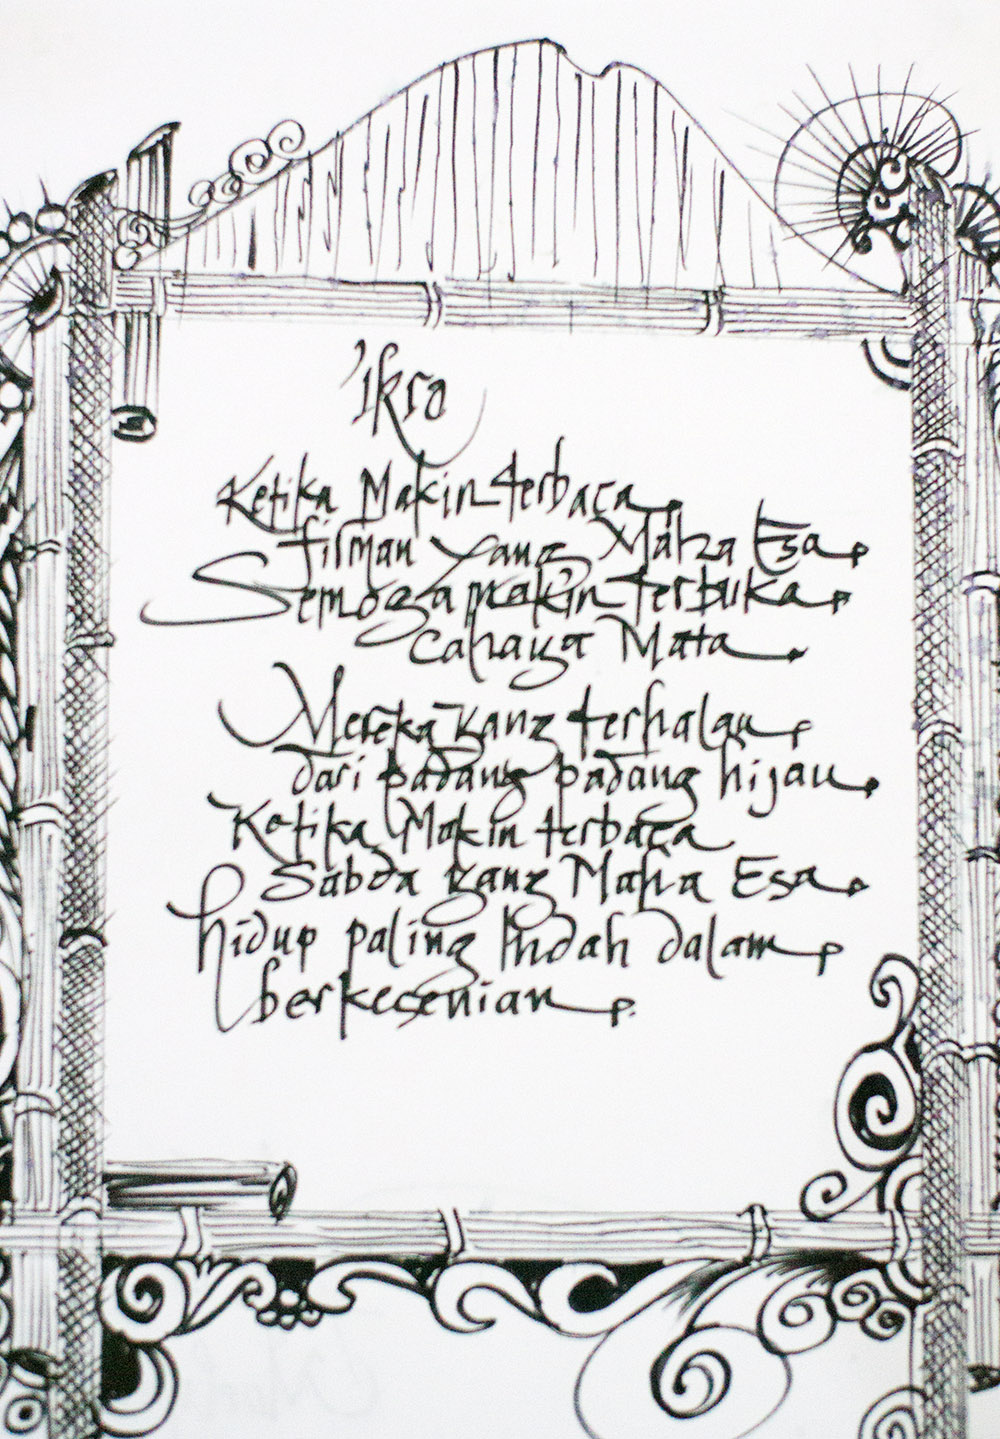 'ikro
Ketika Makin terbaca
firman yang Maha Esa
Semoga makin terbuka
cahaya Mata
Mereka yang terhalau
dari padang padang hijau
Ketika Makin terbaca
Sabda yang Maha Esa
hidup paling Indah dalam
berkesenian